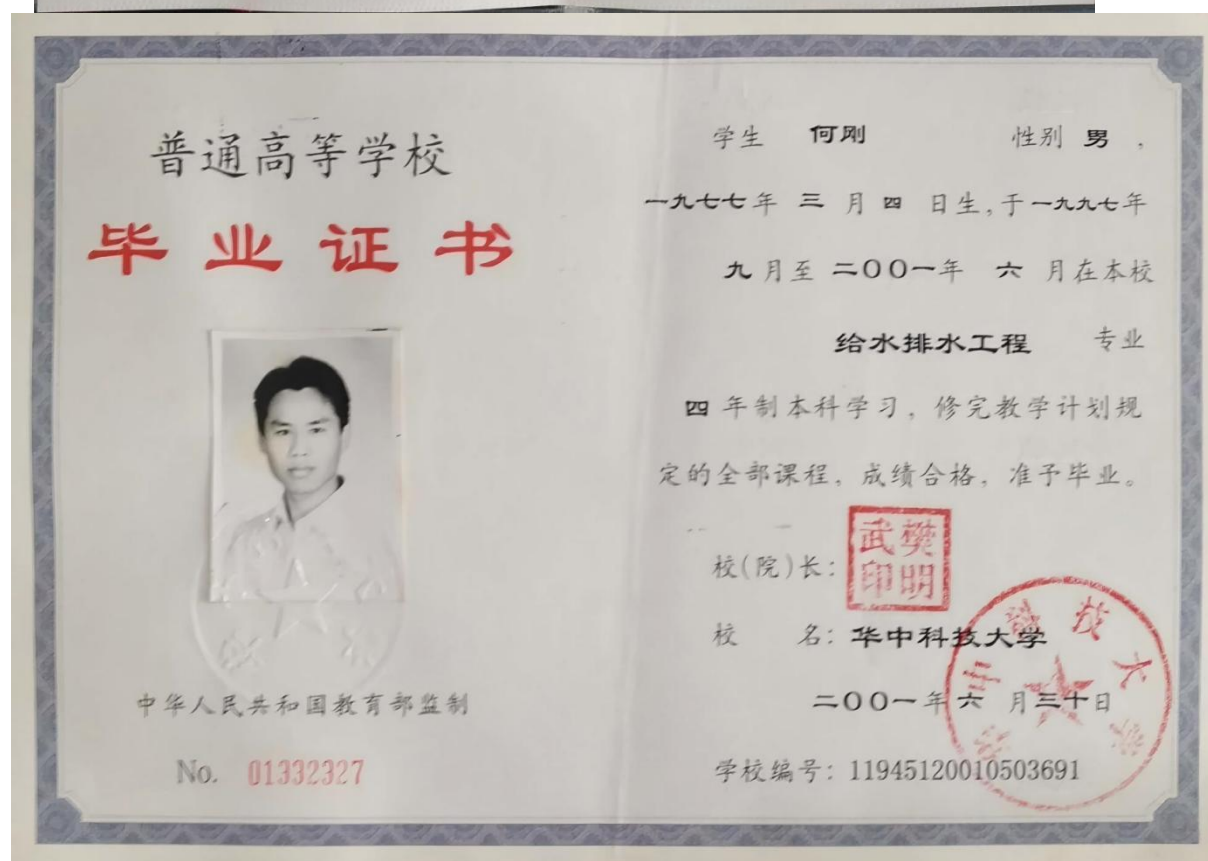 普通高等学校
毕业证书
中华人民共和国教育部监制
No. 01332327
学生 何刚 性别 男,
一九七七年 三 月 四 日生,于一九九七年
九月至 二〇〇一年 六 月在本校
给水排水工程 专业
四 年制本科学习,修完教学计划规
定的全部课程,成绩合格,准予毕业。
校(院)长:
樊明武印
校 名:华中科技大学
二〇〇一年 六 月三十日
学校编号:11945120010503691
华中科技大学